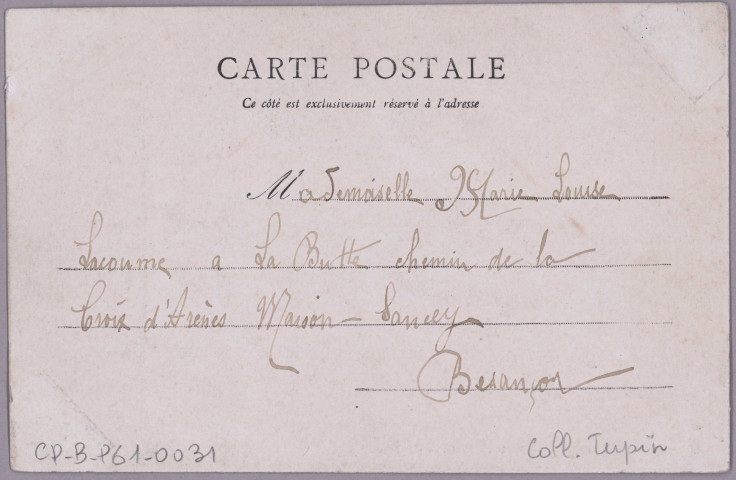 CARTE POSTALE
Ce côté est exclusivement réservé à l'adresse
Mademoiselle Marie Louise
Lacoume a La Butte chemin de la
Croix d'Arènes Maison Sancey
Besançon
CP-B-P61-0031
Coll. Tupin